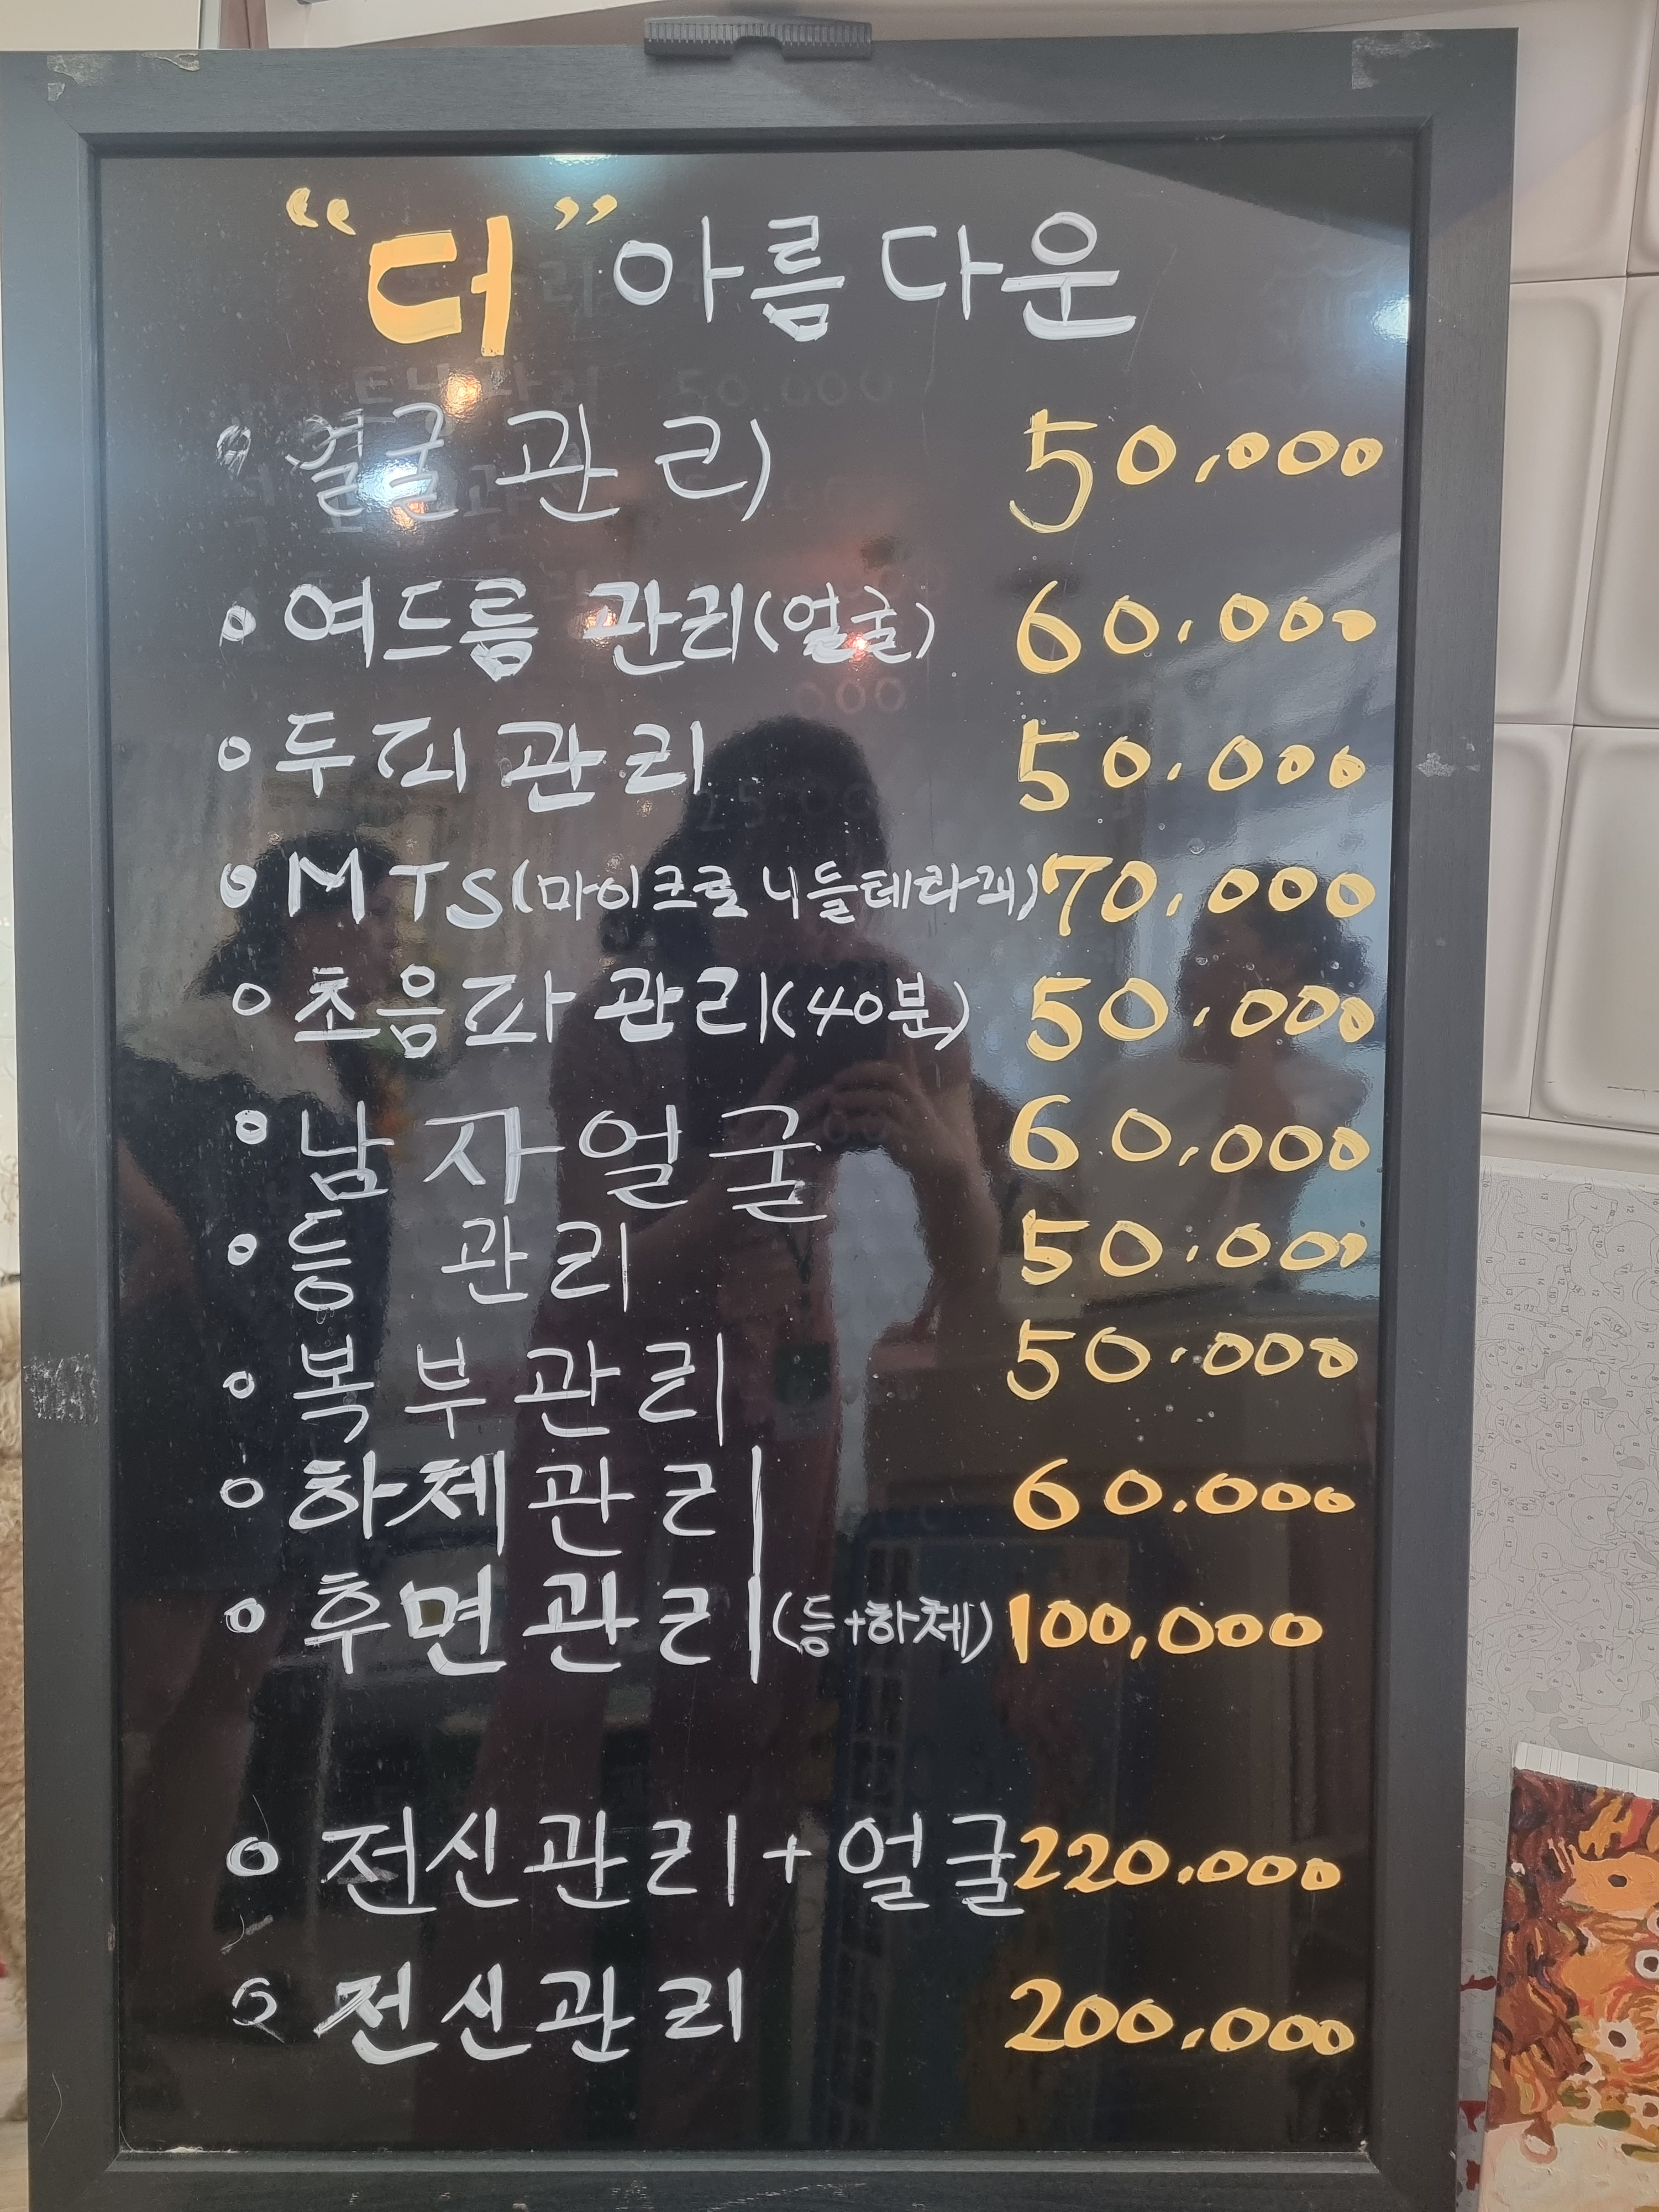 “더” 아름다운
얼굴관리 50,000
여드름 관리(얼굴) 60.000
두피관리 50.000
MTS(마이크로니들테라피) 70.000
초음파관리(40분) 50.000
남자얼굴 60,000
등 관리 50.000
복부관리 50.000
하체관리 60.000
후면관리(등+하체) 100,000
전신관리+얼굴 220.000
전신관리 200.000